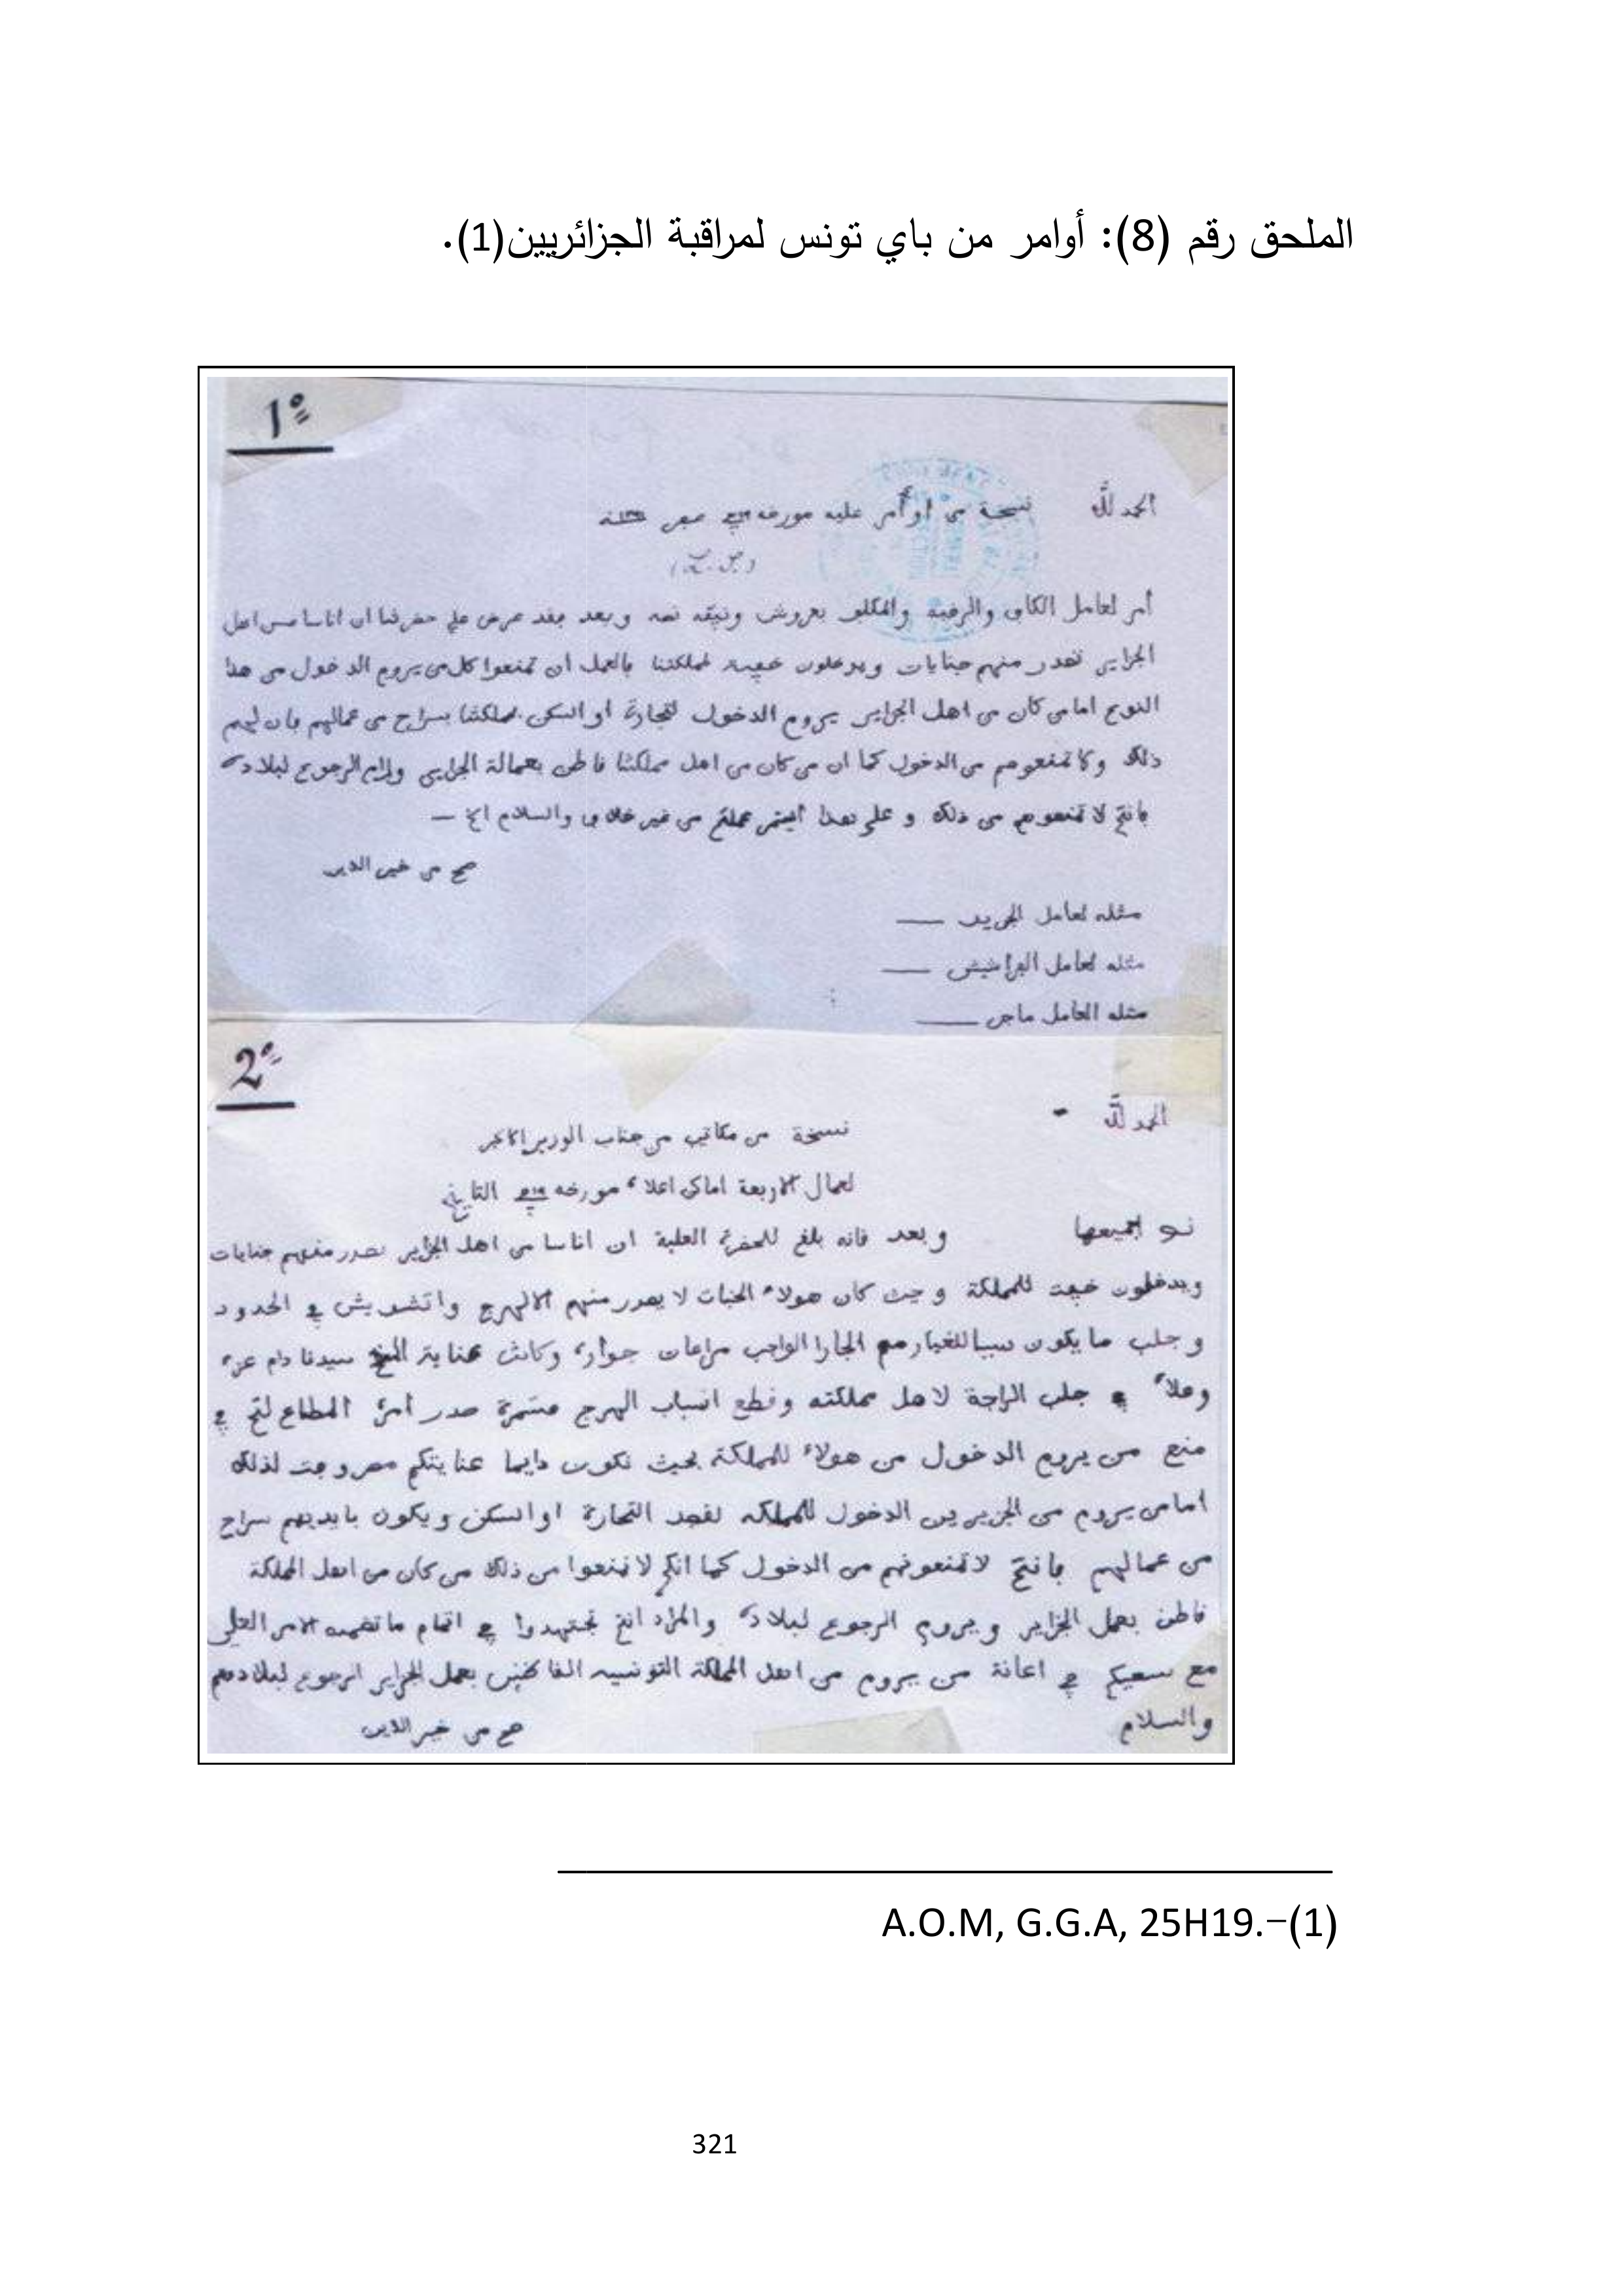 الملحق رقم (8): أوامر من باي تونس لمراقبة الجزائريين(1).
1º
الحمد لله نسخة من أوامر عليه مورخه في صفر سنة
أمر لعامل الكاف والرقبة والمكلف بعروش ونيفه نصه وبعد فقد عرض على حضرتنا ان اناسا من اهل
الجزاير تصدر منهم جنايات ويدخلون خفية لمملكتنا فالعمل أن تمنعوا كل من يروم الدخول من هذا
النوع اما من كان من اهل الجزاير يروم الدخول لتجارة او السكن بمملكتنا بسراح من عمالهم فان لهم
ذلك ولا تمنعوهم من الدخول كما ان من كان من اهل مملكتنا قاطن بعمالة الجزاير ورام الرجوع لبلاده
فانتم لا تمنعوهم من ذلك وعلى هذا يستمر عملكم من غير خلاف والسلام الخ
صح من خير الدين
مثله لعامل الجريد
مثله لعامل الفراشيش
مثله لعامل ماجر
2º
الحمد لله
نسخة من مكاتيب من جناب الوزير الاكبر
لعمال الاربعة اماكن اعلاه مورخه في التاريخ
نص جميعها وبعد فانه بلغ للحضرة العلية ان اناسا من اهل الجزاير تصدر منهم جنايات
ويدخلون خفية للمملكة وحيث كان هولاء الجنات لا يصدر منهم الا الهرج والتشويش في الحدود
وجلب ما يكون سببا للغيار مع الجار الواجب مراعات جواره وكانت عناية سيدنا دام عزه
وعلاه في جلب الراحة لاهل مملكته وقطع اسباب الهرج مستمرة صدر أمره المطاع لكم في
منع من يروم الدخول من هولاء للمملكة بحيث تكون دايما عنايتكم مصروفة لذلك
اما من يروم من الجزيريين الدخول للمملكه لقصد التجارة او السكن ويكون بايديهم سراح
من عمالهم فانتم لا تمنعونهم من الدخول كما انكم لا تمنعوا من ذلك من كان من اهل المملكة
قاطن بعمل الجزاير ويروم الرجوع لبلاده والمراد انكم تجتهدوا في اتمام ما تضمنه الامر العلي
مع سعيكم في اعانة من يروم من اهل المملكة التونسيه القاطنين بعمل الجزاير الرجوع لبلادهم
والسلام
صح من خير الدين
(1)–A.O.M, G.G.A, 25H19.
321